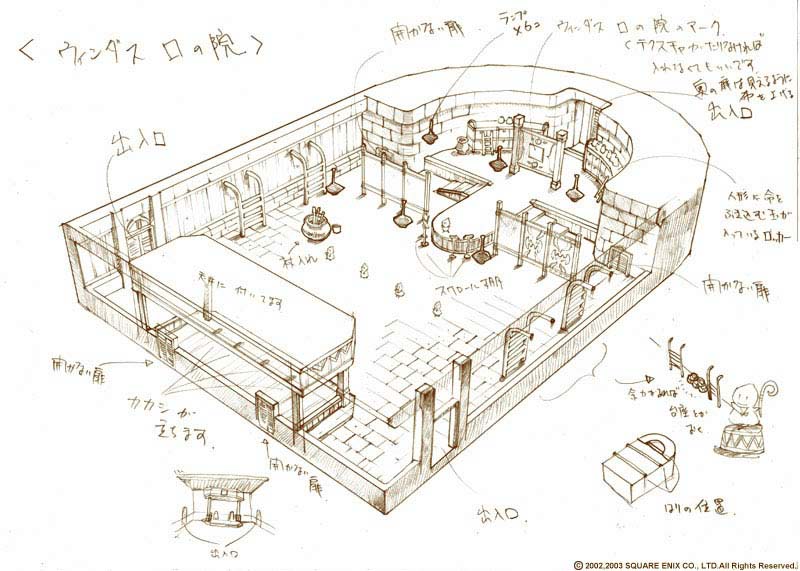 < ウィンダス 口の院 >
開かない扉
ランプ
×6コ
ウィンダス 口の院のマーク
(テクスチャがたりなければ
入れなくてもいいです。
奥の扉は見えるように
布を上げる
出入口
出入口
人形に命を
ふきこむ玉が
入っているロッカー
杖入れ
スクロールに
天井に付いてます
開かない扉
開かない扉
カカシが
立ちます。
開かない扉
余力あれば
台座とか
おく
出入口
はりの位置
出入口
© 2002,2003 SQUARE ENIX CO., LTD.All Rights Reserved.